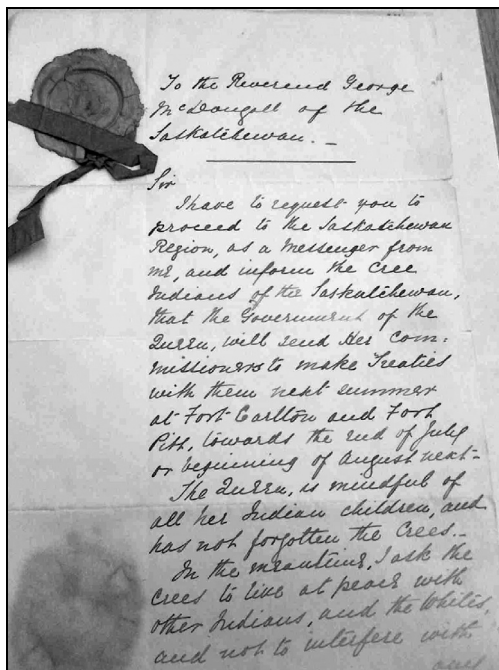 To the Reverend George
McDougall of the
Saskatchewan. _
Sir
I have to request you to
proceed to the Saskatchewan
Region, as a Messenger from
me, and inform the Cree
Indians of the Saskatchewan,
that the Government of the
Queen, will send Her Com:
missioners to make Treaties
with them next summer
at Fort Carlton and Fort
Pitt, towards the end of July
or beginning of August next_
The Queen, is mindful of
all her Indian children, and
has not forgotten the Crees._
In the meantime, I ask the
Crees to live at peace with
other Indians, and the Whites,
and not to interfere with